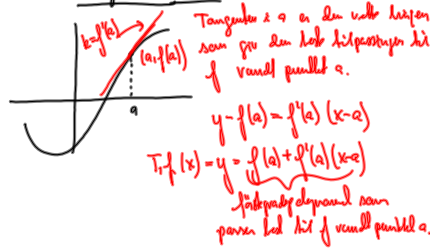 k=f'(a)
(a, f(a))
a
Tangenten i a er den rette linjen
som gir den beste tilpasningen til
f rundt punktet a.
y-f(a)=f'(a)(x-a)
T₁f(x)=y=f(a)+f'(a)(x-a)
førstegradspolynomet som
passer best til f rundt punktet a.